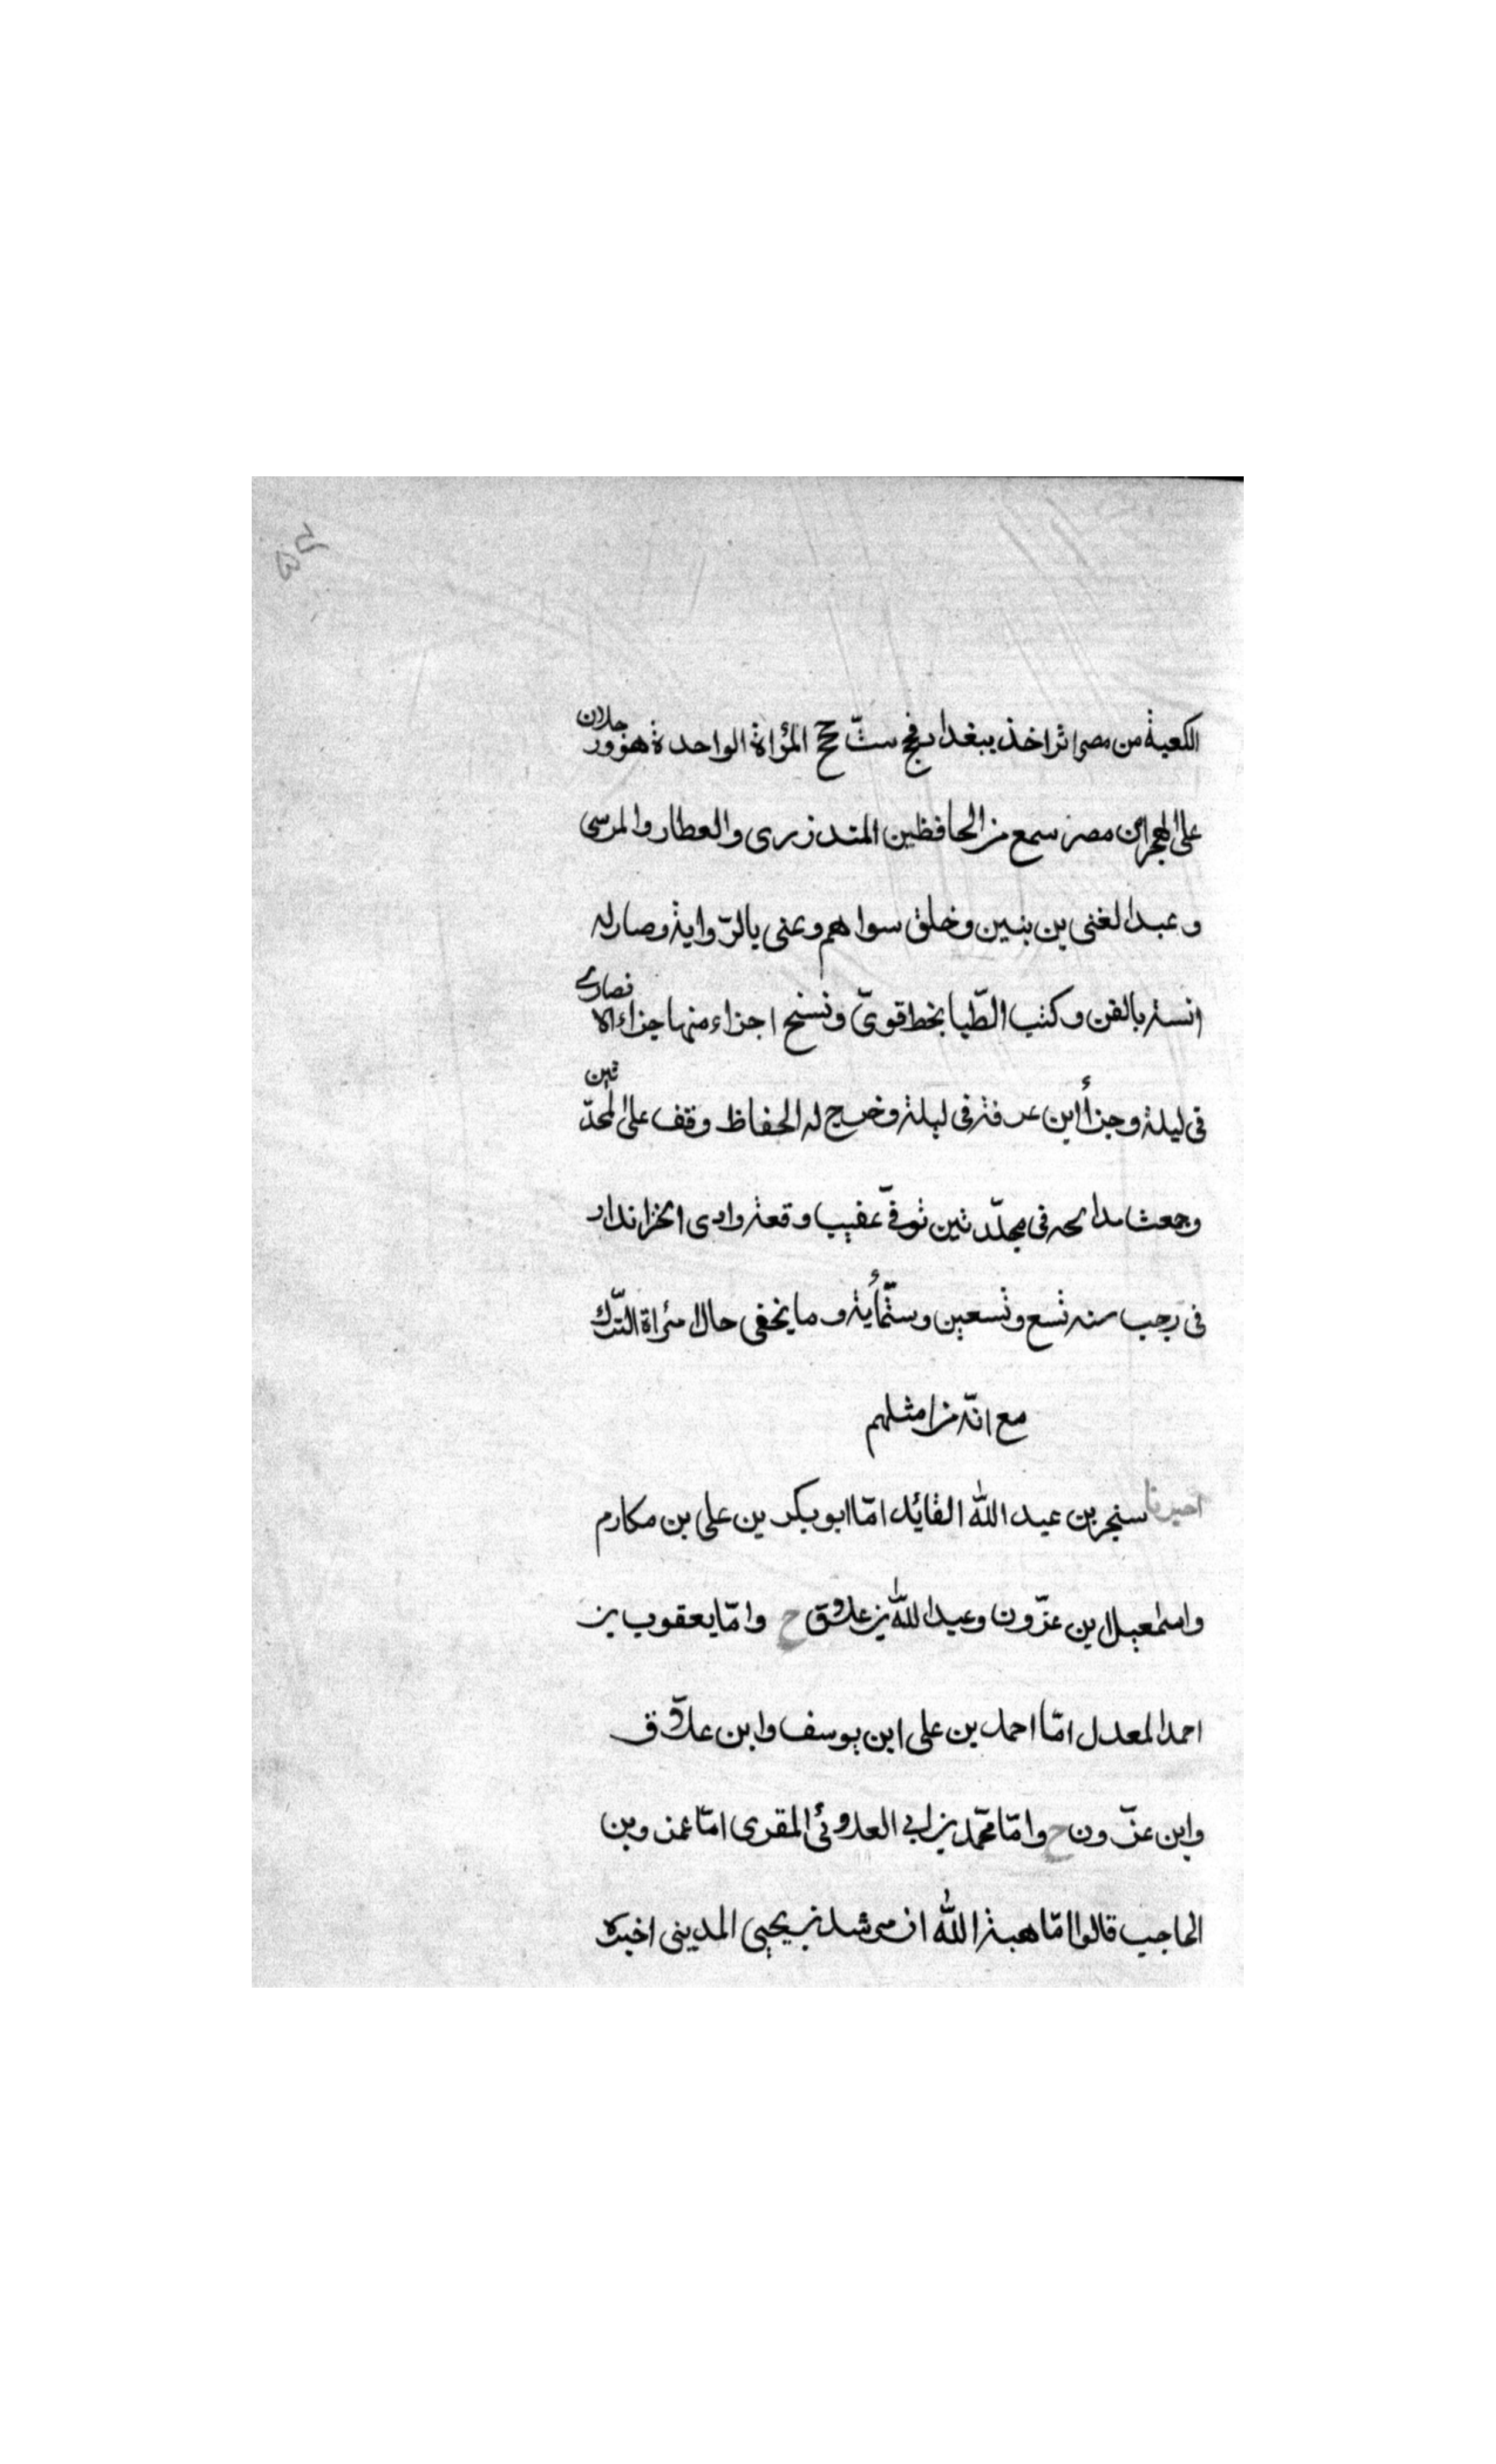 الكعبة من مصر اثر اخذ ببغداد فحج ستّ حجج المرّاة الواحدة هو ورجلان
على الهجن من مصر سمع من الحافظين المنذزرى والعطار والمرسى
وعبد الغنى بن بنين وخلق سواهم وعنى بالرّواية وصار له
انسة بالفن وكتب الطّبا بخط قوىّ ونسخ اجزاء منها جزاء الانصارى
فى ليلة وجزأ ابن عرفة فى ليلة وخرج له الحفاظ وقف على المحدّثين
وجمعت مدائحه فى مجلّدتين توفّى عقيب وقعة وادى الخزاندار
فى رجب سنه تسع وتسعين وستّمأية وما يخفى حال امراة التّرك
مع انّه من امثلهم
اخبرنا سنجر بن عبد الله القايد امّا ابو بكر بن على بن مكارم
واسمعيل ابن عزّون وعبد اللّه بن علاق ح وامّا يعقوب بن
احمد المعدل امّا احمد بن على ابن يوسف وابن علاّق
وابن عزّون ح وامّا محمّد بن ابى العلاوئى المقرى امّا عمز وبن
الحاجب قالوا امّا هبة الله ان مرشد بن يحيى المدينى اخبره